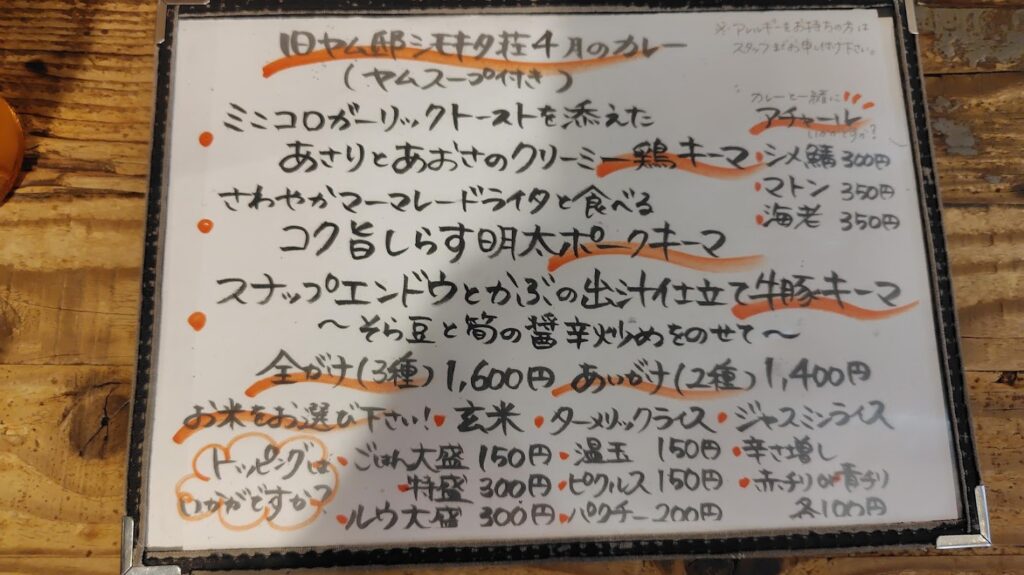 旧ヤム邸シモキタ荘4月のカレー
(ヤムスープ付き)
※アレルギーをお持ちの方は
スタッフまでお申し付け下さい。
ミニコロガーリックトーストを添えた
あさりとあおさのクリーミー鶏キーマ
さわやかマーマレードライタと食べる
コク旨しらす明太ポークキーマ
スナップエンドウとかぶの出汁仕立て牛豚キーマ
〜そら豆と筍の醤辛炒めをのせて〜
カレーと一緒に
アチャール
いかがですか?
シメ鯖 300円
マトン 350円
海老 350円
全がけ(3種) 1,600円 あいがけ(2種) 1,400円
お米をお選び下さい! 玄米 ターメリックライス ジャスミンライス
トッピングは
いかがですか?
ごはん大盛 150円 温玉 150円 辛さ増し
特盛 300円 ピクルス 150円 赤チリor青チリ
ルウ大盛 300円 パクチー 200円 各100円